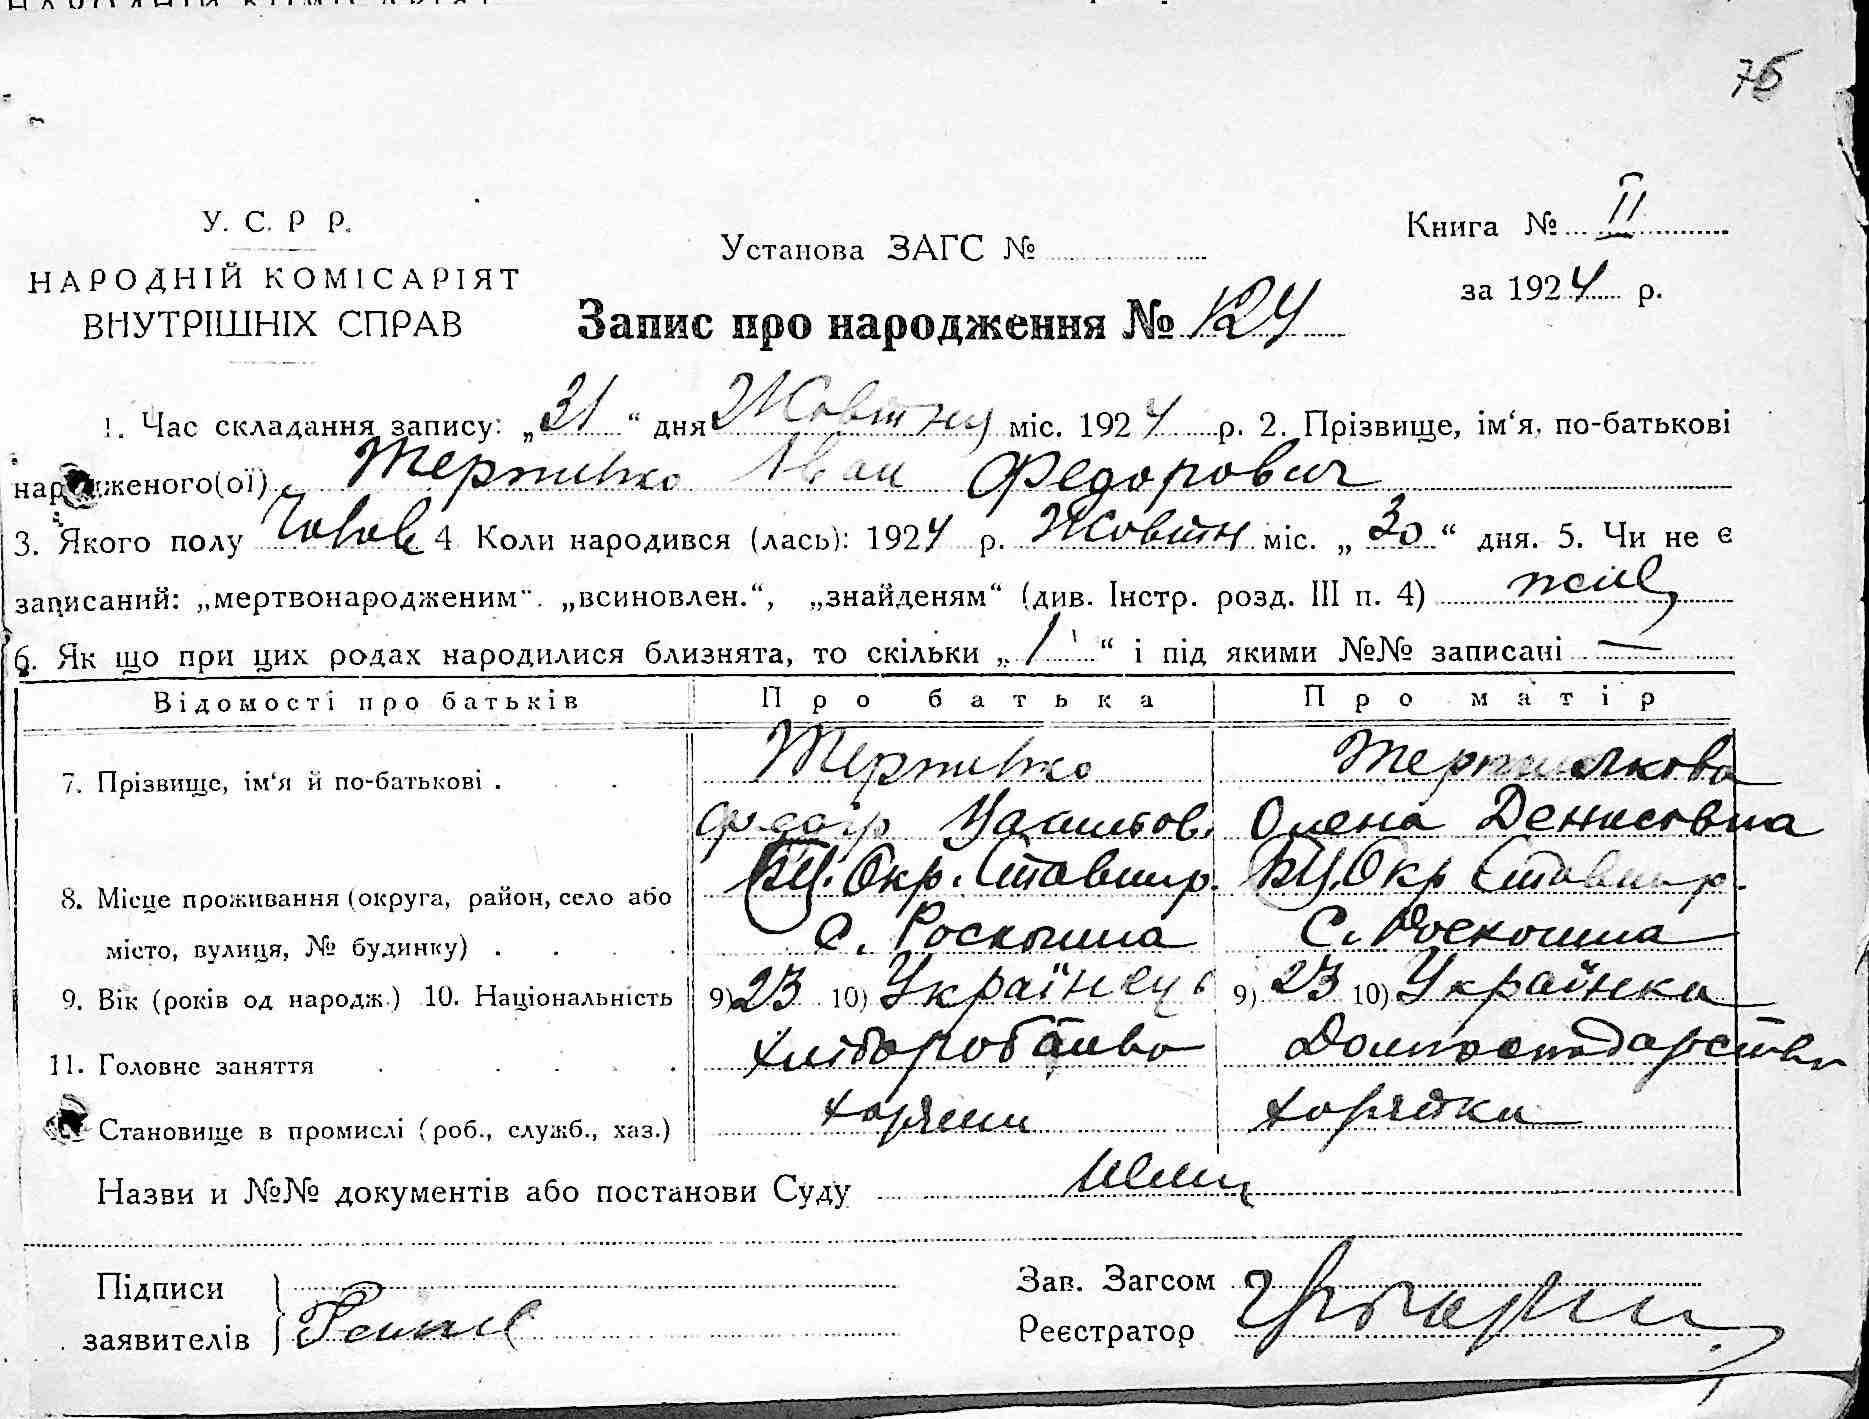 75
У. С. Р Р.
НАРОДНІЙ КОМІСАРІЯТ
ВНУТРІШНІХ СПРАВ
Установа ЗАГС №
Книга № II
за 1924 р.
Запис про народження № 124
1. Час складання запису: „31“ дня Жовтня міс. 1924 р. 2. Прізвище, ім‘я, по-батькові
народженого(ої) Іван Федорович
3. Якого полу Чолов 4 Коли народився (лась): 1924 р. Жовтн міс. „30“ дня. 5. Чи не є
записаний: „мертвонародженим“. „всиновлен.“, „знайденям“ (див. Інстр. розд. III п. 4)
6. Як що при цих родах народилися близнята, то скільки „1“ і під якими №№ записані —
Відомості про батьків Про батька Про матір
7. Прізвище, ім‘я й по-батькові .
Федір Олена Денисовна
8. Місце проживання (округа, район, село або БЦ. Окр. Ставищ. БЦ. Окр Ставищ.
місто, вулиця, № будинку) . . . . С. Роскошна С. Роскошна
9. Вік (років од народж.) 10. Національність 9) 23 10) Українець 9) 23 10) Українка
11. Головне заняття . . . . . хліборобство Домгосподарство
Становище в промислі (роб., служб., хаз.)
Назви и №№ документів або постанови Суду
Підписи
заявителів
Зав. Загсом
Реєстратор